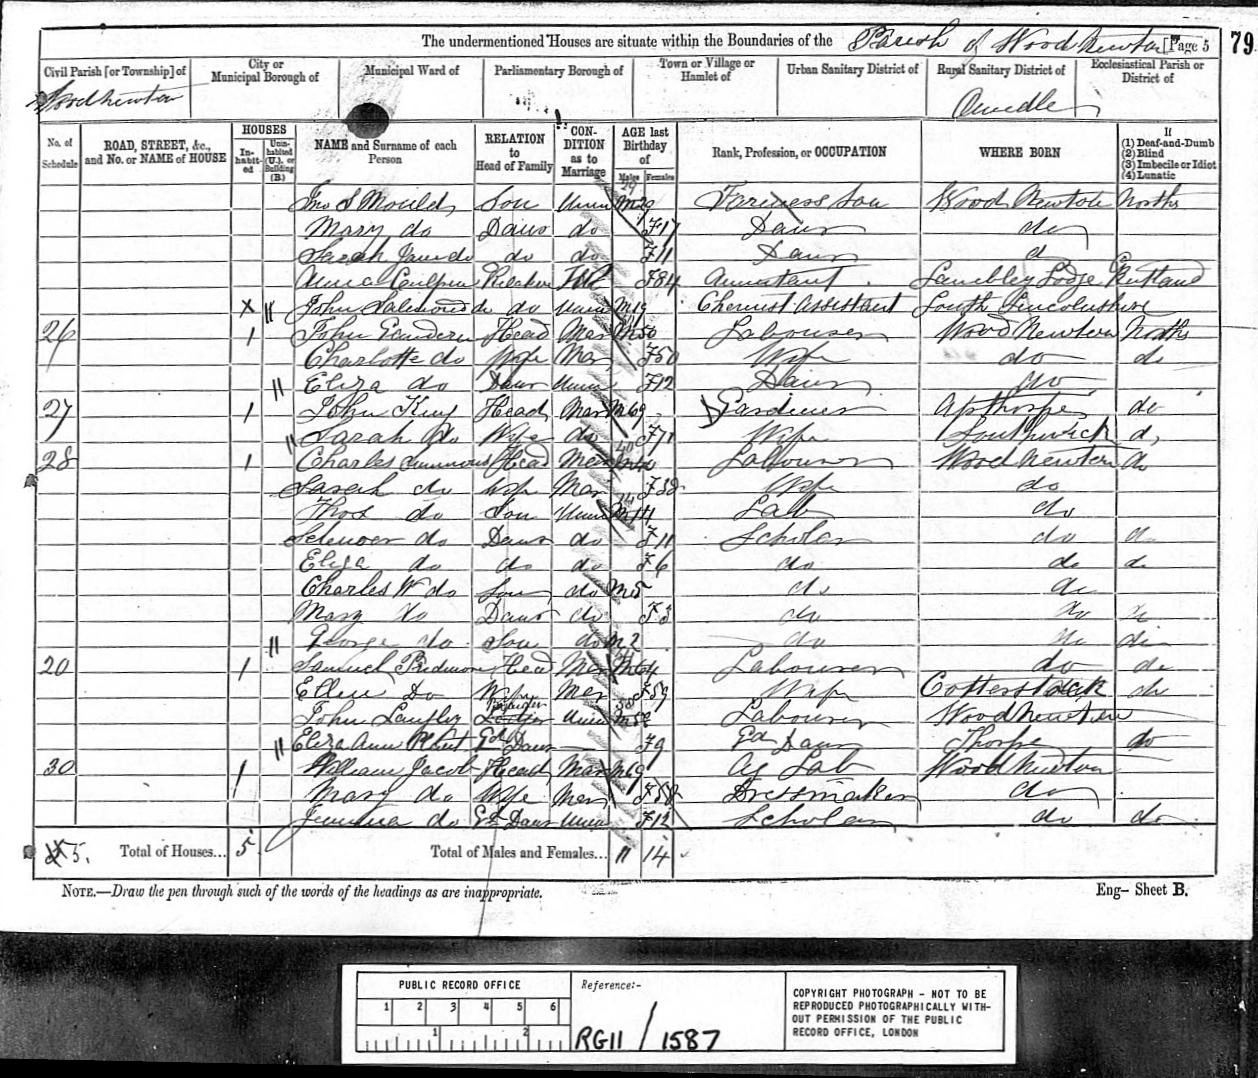 The undermentioned Houses are situate within the Boundaries of the Parish of Wood Newton [Page 5 79
Civil Parish [or Township] of
Woodnewton
City or Municipal Borough of
Municipal Ward of
Parliamentary Borough of
Town or Village or Hamlet of
Urban Sanitary District of
Rural Sanitary District of
Oundle
Ecclesiastical Parish or District of
No. of Schedule
ROAD, STREET, &c., and No. or NAME of HOUSE
HOUSES
In-habit-ed
Unin-habited (U.), or Building (B.)
NAME and Surname of each Person
RELATION to Head of Family
CON-DITION as to Marriage
AGE last Birthday of
Males Females
Rank, Profession, or OCCUPATION
WHERE BORN
If
(1) Deaf-and-Dumb
(2) Blind
(3) Imbecile or Idiot
(4) Lunatic
Jno S Mould Son Unm 29 Farmers Son Wood Newton Norths
Mary do Daur do F17 Daur do
Sarah Jane do do do F11 Daur do
F84 Annuitant Lodge Rutland
X John do Unm M19 Chemist Assistant South Lincolnshire
26 1 John Head Mar M50 Labourer Wood Newton Norths
Charlotte do Wife Mar F50 Wife do do
Eliza do Daur Unm F12 Daur do
27 1 John King Head Mar M69 Gardener Apthorpe do
Sarah do Wife do F71 Wife Southwick do
28 1 Charles Head Mar 40 Labourer Wood Newton do
Sarah do Wife Mar F38 Wife do
Thos do Son Unm M14 Lab do
do Daur do F11 Scholar do do
Eliza do do do F6 do do do
Charles W do Son do M5 do do
Mary do Daur do F3 do do do
George do Son do M2 do do do
20 1 Samuel Head Mar M64 Labourer do do
Ellen Do Wife Mar F59 Wife Cotterstock do
John Langley Unm M58 Labourer Wood Newton
Eliza Ann Gd Daur F9 Gd Daur Thorpe do
30 1 William Jacob Head Mar M69 Ag Lab Wood Newton
Mary do Wife Mar F58 Dressmaker do
Jemima do Gd Daur Unm F12 Scholar do do
5. Total of Houses... 5 Total of Males and Females... 11 14
NOTE.—Draw the pen through such of the words of the headings as are inappropriate.
Eng– Sheet B.
PUBLIC RECORD OFFICE
1 2 3 4 5 6
1 2
Reference:-
RG11 / 1587
COPYRIGHT PHOTOGRAPH - NOT TO BE
REPRODUCED PHOTOGRAPHICALLY WITH-
OUT PERMISSION OF THE PUBLIC
RECORD OFFICE, LONDON